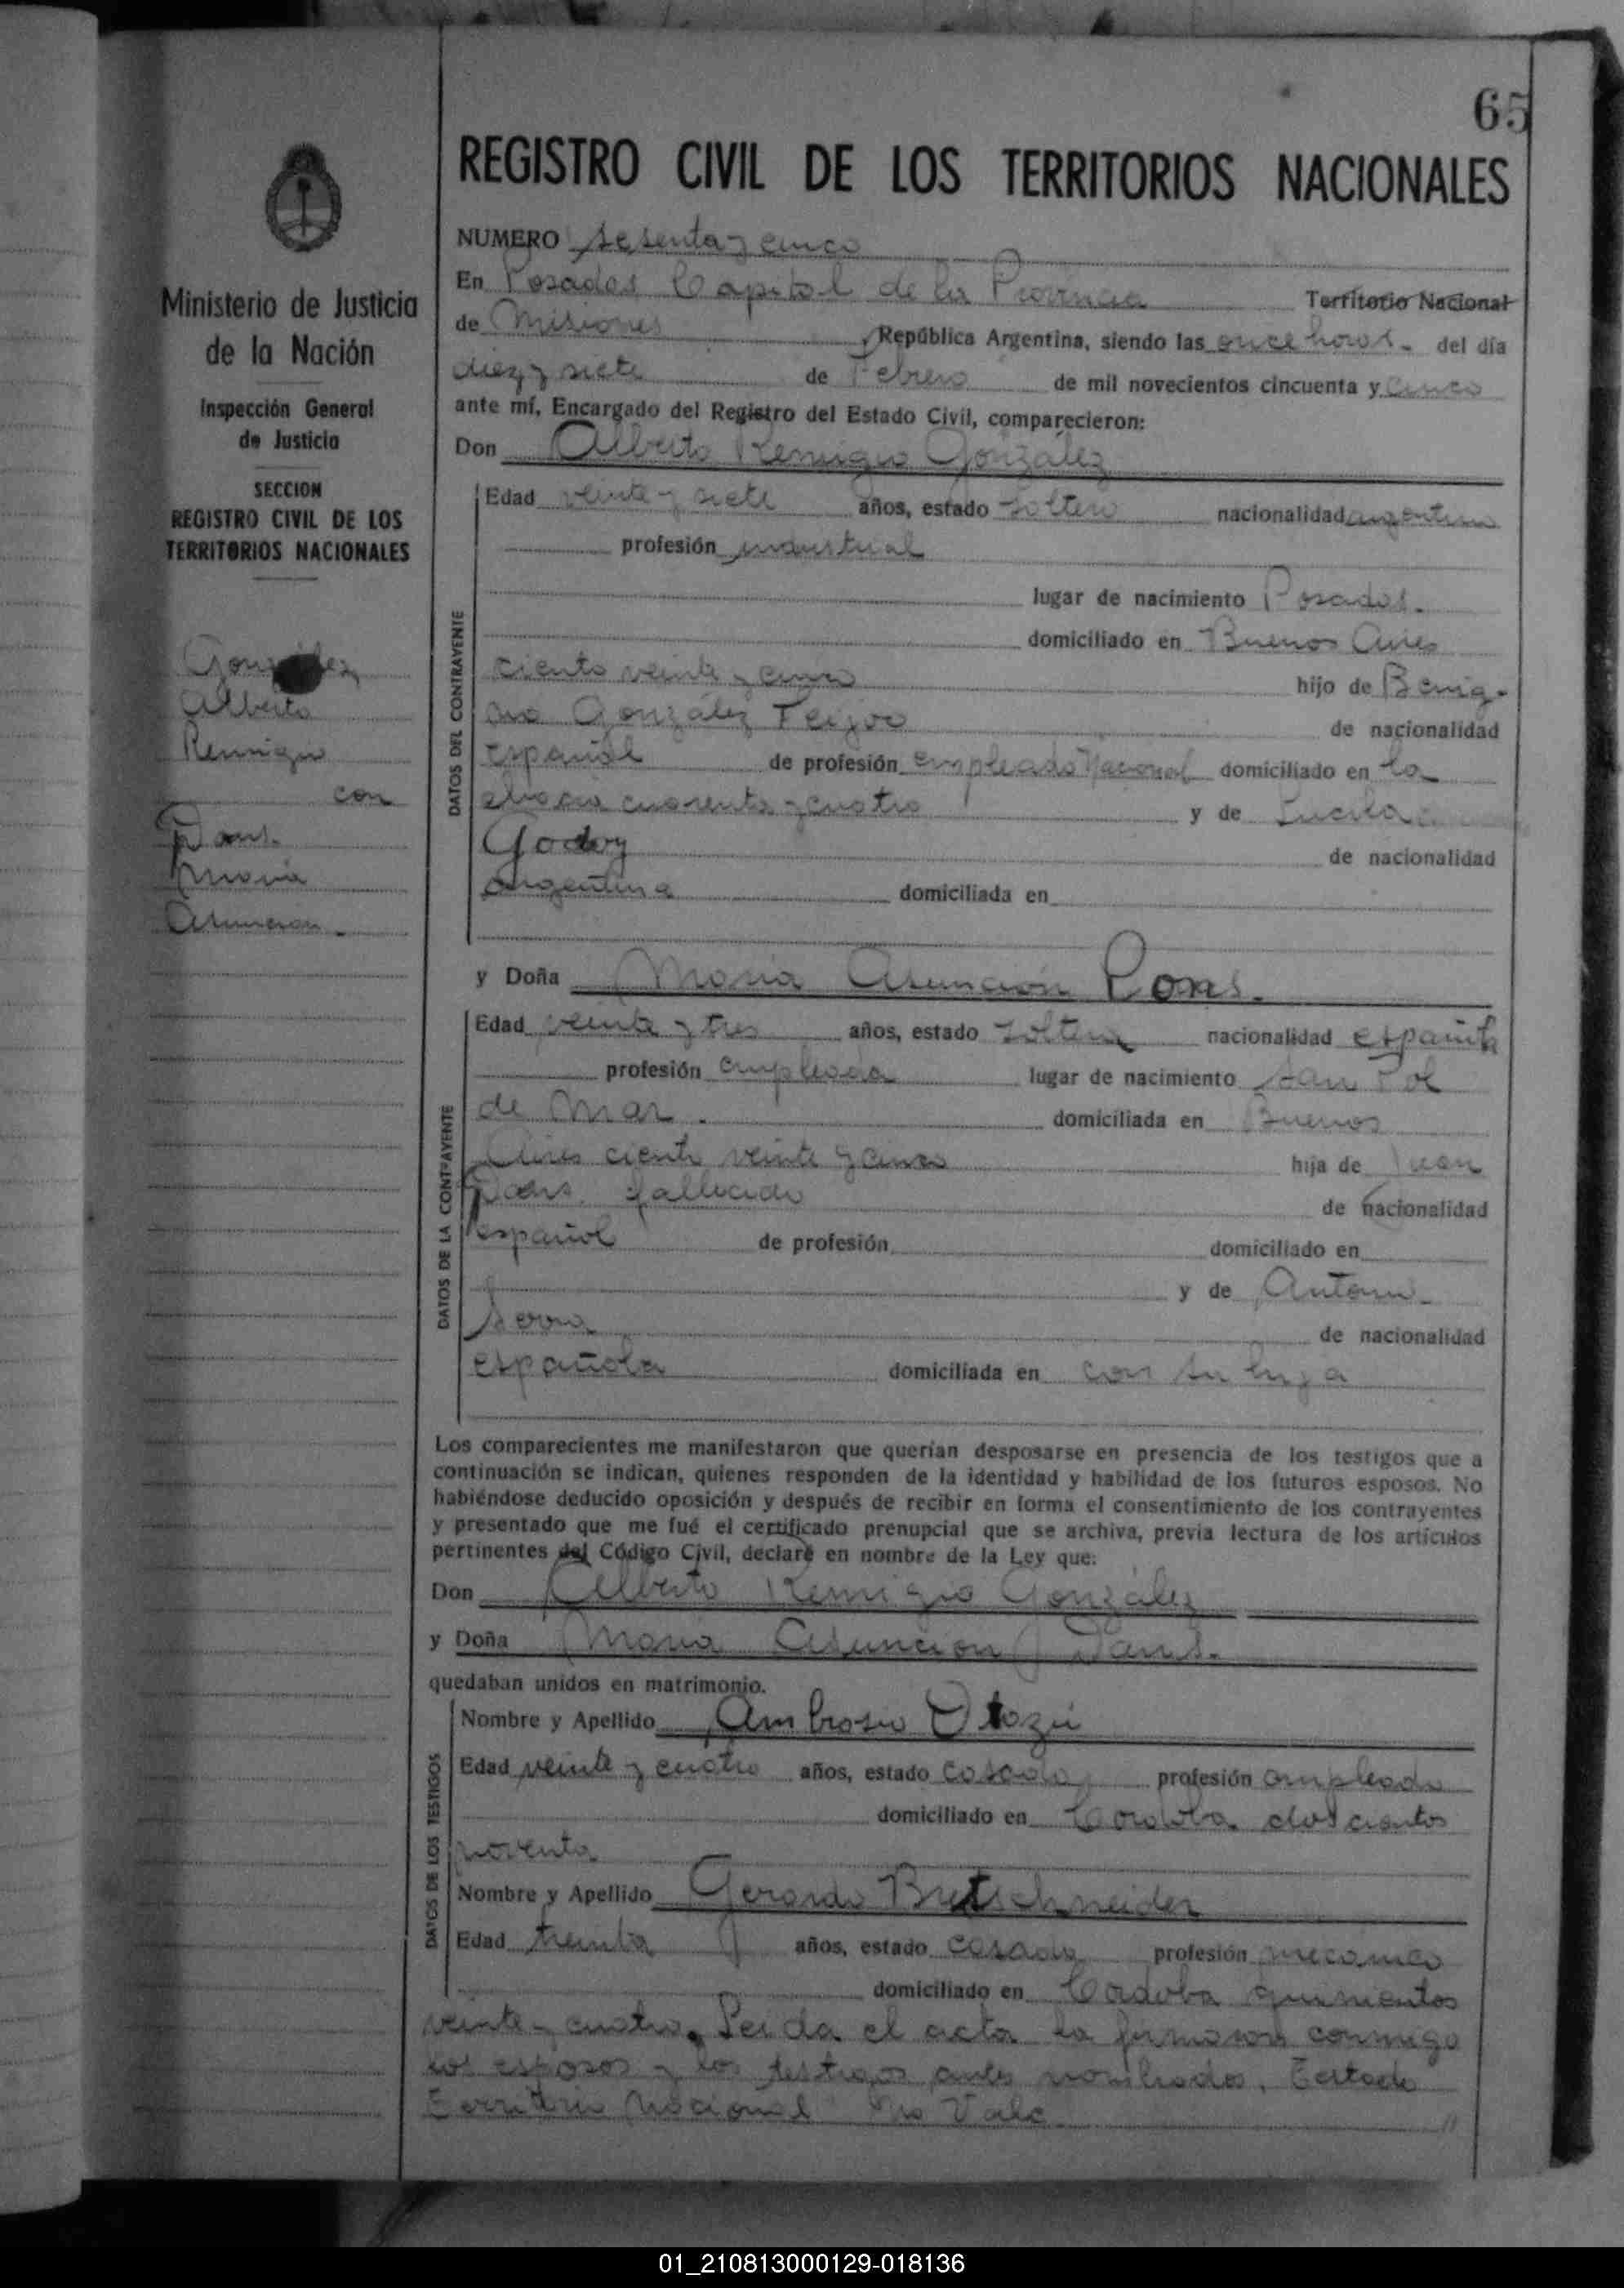 65
REGISTRO CIVIL DE LOS TERRITORIOS NACIONALES
Ministerio de Justicia
de la Nación
Inspección General
de Justicia
SECCION
REGISTRO CIVIL DE LOS
TERRITORIOS NACIONALES
González
Alberto
Remigio
con
Pons.
Maria
Asuncion.
NUMERO sesenta y cinco
En Posadas Capital de la Provincia Territorio Nacional
de Misiones, República Argentina, siendo las once horas. del día
diez y siete de Febrero de mil novecientos cincuenta y cinco
ante mí, Encargado del Registro del Estado Civil, comparecieron:
Don Alberto Remigio González
DATOS DEL CONTRAYENTE
Edad veinte y siete años, estado soltero nacionalidad argentino
profesión industrial
lugar de nacimiento Posadas.
domiciliado en Buenos Aires
ciento veinte y cinco hijo de Benig-
no González Feijoo de nacionalidad
español de profesión empleado Nacional domiciliado en la
chacra cuarenta y cuatro y de Lucila
Godoy de nacionalidad
argentina domiciliada en
y Doña Maria Asunción Pons.
DATOS DE LA CONTRAYENTE
Edad veinte y tres años, estado soltera nacionalidad española
profesión empleada lugar de nacimiento San Pol
de Mar. domiciliada en Buenos
Aires ciento veinte y cinco hija de Juan
Pons. fallecido de nacionalidad
español de profesión domiciliado en
y de
Serra de nacionalidad
española domiciliada en con su hija
Los comparecientes me manifestaron que querían desposarse en presencia de los testigos que a
continuación se indican, quienes responden de la identidad y habilidad de los futuros esposos. No
habiéndose deducido oposición y después de recibir en forma el consentimiento de los contrayentes
y presentado que me fué el certificado prenupcial que se archiva, previa lectura de los artículos
pertinentes del Código Civil, declaré en nombre de la Ley que:
Don Alberto Remigio González
y Doña Maria Asuncion Pons.
quedaban unidos en matrimonio.
DATOS DE LOS TESTIGOS
Nombre y Apellido Ambrosio Otazú
Edad veinte y cuatro años, estado casado profesión empleado
domiciliado en Cordoba doscientos
noventa
Nombre y Apellido Gerardo Bretschneider
Edad treinta años, estado casado profesión mecanico
domiciliado en Cordoba quinientos
veinte y cuatro. Leida el acta la firmaron conmigo
los esposos y los testigos antes nombrados. Testado
Territorio Nacional No Vale
01_210813000129-018136